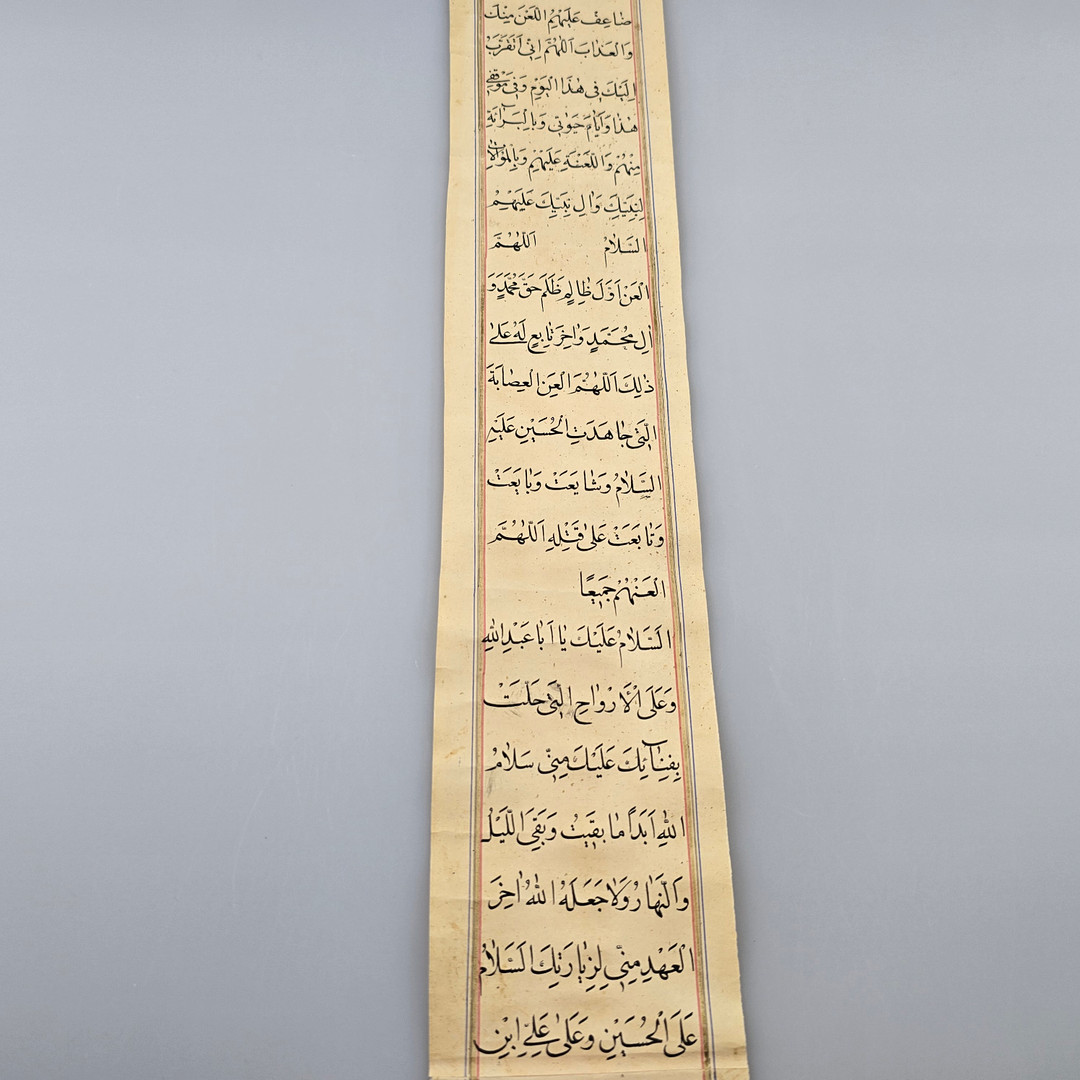 ضاعِف عَلَيْهِمُ اللَّعْنَ مِنْكَ
وَالْعَذابَ اَللّهُمَّ اِنّي اَتَقَرَّبُ
اِلَيْكَ في هذَا الْيَوْمِ وَفي مَوْقِفي
هذا وَاَيّامِ حَيوتي وَبِالْبَرآئَةِ
مِنْهُمْ وَاللَّعْنَةِ عَلَيْهِمْ وَبِالْمُوالاتِ
لِنَبِيِّكَ وَالِ نَبِيِّكَ عَلَيْهِمُ
السَّلامُ اَللّهُمَّ
الْعَنْ اَوَّلَ ظالِمٍ ظَلَمَ حَقَّ مُحَمَّدٍ وَ
الِ مُحَمَّدٍ وَاخِرَ تابِعٍ لَهُ عَلى
ذلِكَ اَللّهُمَّ الْعَنِ الْعِصابَةَ
الَّتي جاهَدَتِ الْحُسَيْنِ عَلَيْهِ
السَّلامُ وَشايَعَتْ وَبايَعَتْ
وَتابَعَتْ عَلى قَتْلِهِ اَللّهُمَّ
الْعَنْهُمْ جَميعًا
اَلسَّلامُ عَلَيْكَ يا اَبا عَبْدِ اللهِ
وَعَلَى الْاَرْواحِ الَّتي حَلَّتْ
بِفِنائِكَ عَلَيْكَ مِنّي سَلامُ
اللهِ اَبَدًا ما بَقيتُ وَبَقِيَ اللَّيْلُ
وَالنَّهارُ وَلا جَعَلَهُ اللهُ اخِرَ
الْعَهْدِ مِنّي لِزِيارَتِكَ اَلسَّلامُ
عَلَى الْحُسَيْنِ وَعَلى عَلِيِّ ابْنِ